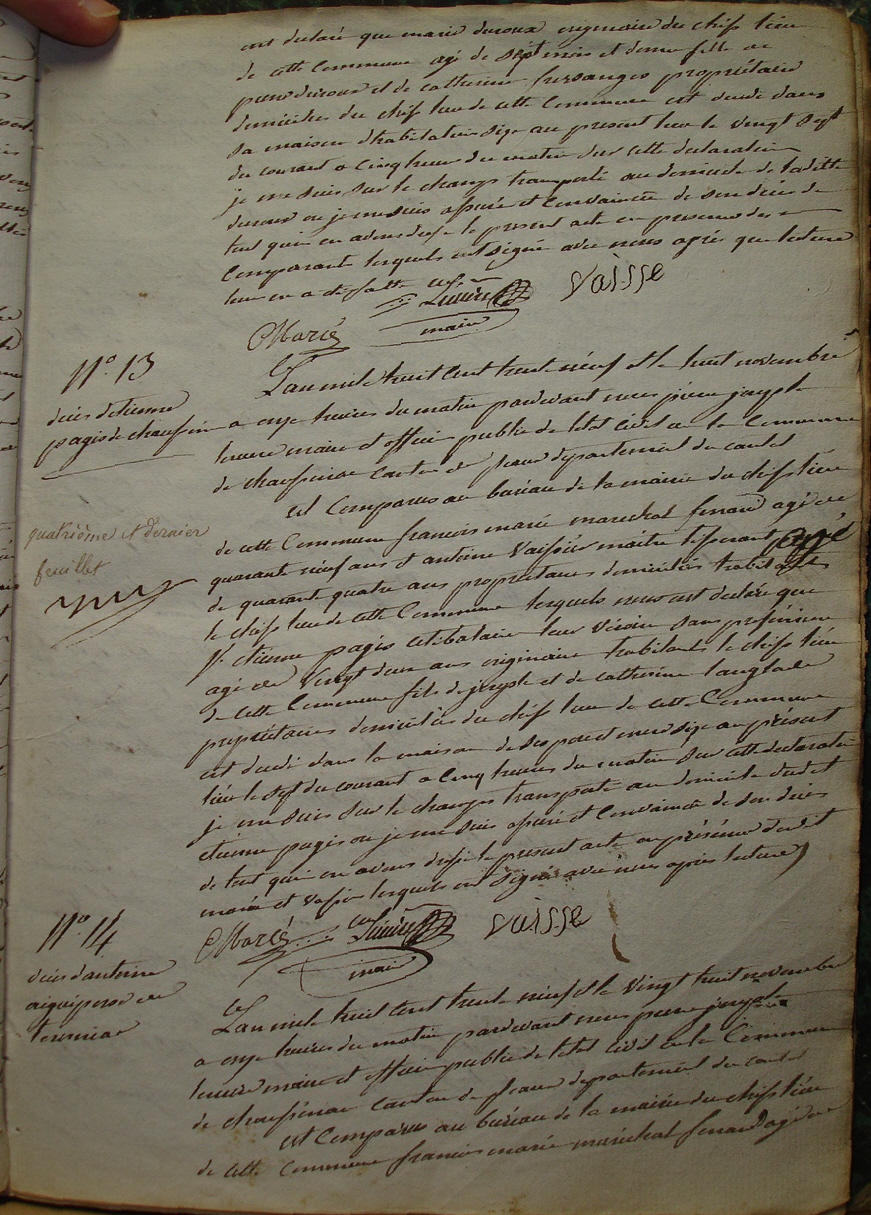 ont declaré que marie duroux originaire du chef lieu
de cette Commune agé de sept mois et demi fille de
pierre duroux et de catherine propriétaire
domiciliés du chef lieu de cette Commune est decedé dans
sa maison d'habitation size au present lieu le vingt sept
du courant a cinq heures du matin sur cette declaration
je me suis sur le champs transporté au domicile de ladite
duroux ou je me suis assuré et Convaincu de son décès de
tout quoi en avons dressé le present acte en presence des
Comparant lesquels ont signé avec nous après que lecture
leur en a été faitte
Marié maire vaisse
N° 13
décès d'etienne
pagis de chaussenac
quatrième et dernier
feuillet
L'an mil huit cent trente neuf et le huit novembre
a onze heures du matin pardevant nous pierre joseph
maire et officier public de l'etat Civil de la Commune
de chaussenac canton de pleaux departement du cantal
est Comparus au bureau de la mairie du chef lieu
de cette Commune francois marié marechal ferrand agé de
quarante neuf ans et antoine Vaissier maitre agé
de quarante quatre ans propriétaires domiciliés habitants
le chef lieu de cette Commune lesquels nous ont declaré que
etienne pagis celibataire leur voisin sans profession
agé de vingt deux ans originaire habitant le chef lieu
de cette Commune fils de joseph et de catherine langlade
propriétaires domiciliés du chef lieu de cette Commune
est decedé dans la maison de ses pere et mere size au présent
lieu le sept du courant a cinq heures du matin sur cette declaration
je me suis sur le champs transporté au domicile dudit
etienne pagis ou je me suis assuré et Convaincu de son décès
de tout quoi en avons dressé le present acte en présence dudit
marié et vaissié lesquels ont signé avec nous après lecture
Marié maire vaisse
N° 14
décès d'antoine
aigueperse de
L'an mil huit cent trente neuf et le vingt huit novembre
a onze heures du matin pardevant nous pierre joseph
maire et officier public de l'etat Civil de la Commune
de chaussenac canton de pleaux departement du cantal
est Comparus au bureau de la mairie du chef lieu
de cette Commune francois marié maréchal ferrand agé de